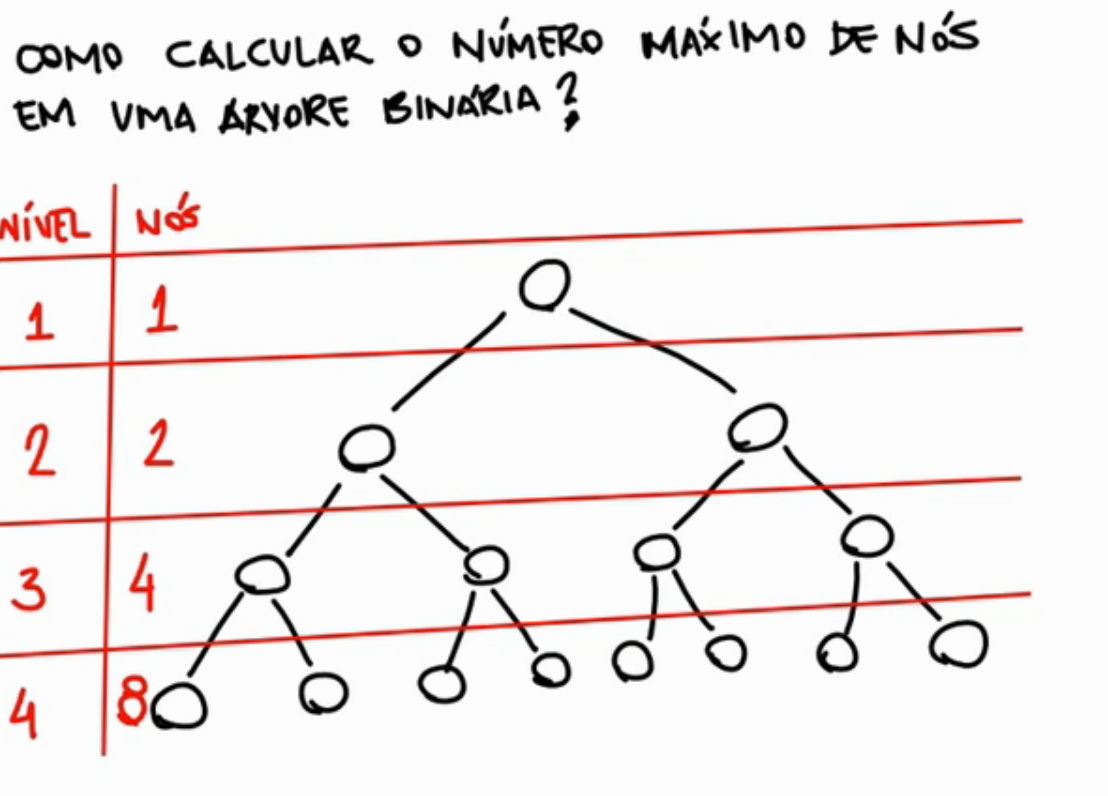 COMO CALCULAR O NÚMERO MÁXIMO DE NÓS
EM UMA ÁRVORE BINÁRIA?
NÍVEL NÓS
1 1
2 2
3 4
4 8